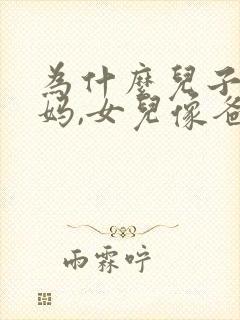 為什麼兒子
媽,女兒像爸
雨霖咛